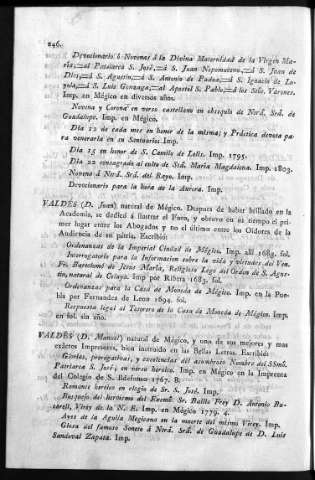 246.
Devocionario ó Novenas á la Divina Maternidad de la Virgen Ma-
ria,=al Patriarca S. José,=á S. Juan Nepomuceno,=á S. Juan de
Dios,=á S. Agustin,=á S. Antonio de Padua,=á S. Ignacio de Lo-
yola,=á S. Luis Gonzaga,=al Apostol S. Pablo,=á los Stos. Varones.
Imp. en Mégico en diversos años.
Novena y Corona en verso castellano en obsequio de Ntrâ. Srâ. de
Guadalupe. Imp. en Mégico.
Dia 12 de cada mes en honor de la misma; y Práctica devota pa-
ra venerarla en su Santuario. Imp.
Dia 15 en honor de S. Camilo de Lelis. Imp. 1795.
Dia 22 consagrado al culto de Stâ. Maria Magdalena. Imp. 1803.
Novena á Ntrâ. Srâ. del Rayo. Imp.
Devocionario para la hora de la Aurora. Imp.
VALDÉS (D. Juan) natural de Mégico. Despues de haber brillado en la
Academia, se dedicó á ilustrar el Foro, y obtuvo en su tiempo el pri-
mer lugar entre los Abogados y no el último entre los Oidores de la
Audiencia de su patria. Escribió:
Ordenanzas de la Imperial Ciudad de Mégico. Imp. alli 1683. fol.
Interrogatorio para la Informacion sobre la vida y virtudes del Ven.
Fr. Bartolomé de Jesus Maria, Religioso Lego del Orden de S. Agus-
tin, natural de Imp. por Ribera 1683. fol.
Ordenanzas para la Casa de Moneda de Mégico. Imp. en la Pue-
bla por Fernandez de Leon 1694. fol.
Respuesta legal al Tesorero de la Casa de Moneda de Mégico. Imp.
en fol. sin año.
VALDÉS (D. Manuel) natural de Mégico, y uno de sus mejores y mas
exâctos Impresores, bien instruido en las Bellas Letras. Escribió:
Glorias, prerogativas, y excelencias del Smô.
Patriarca S. José, en verso heroico. Imp. en Mégico en la Imprenta
del Colegio de S. Ildefonso 1767. 8.
Romance heroico en elogio de Sr. S. José. Imp.
Bosquejo del heroismo del Exmô. Sr. Bailio Frey D. Antonio Bu-
careli, Virey de la N. E. Imp. en Mégico 1779. 4.
Ayes de la Aguila Megicana en la muerte del mismo Virey. Imp.
Glosa del famoso Soneto á Ntrâ. Srâ. de Guadalupe de D. Luis
Sandoval Zapata. Imp.